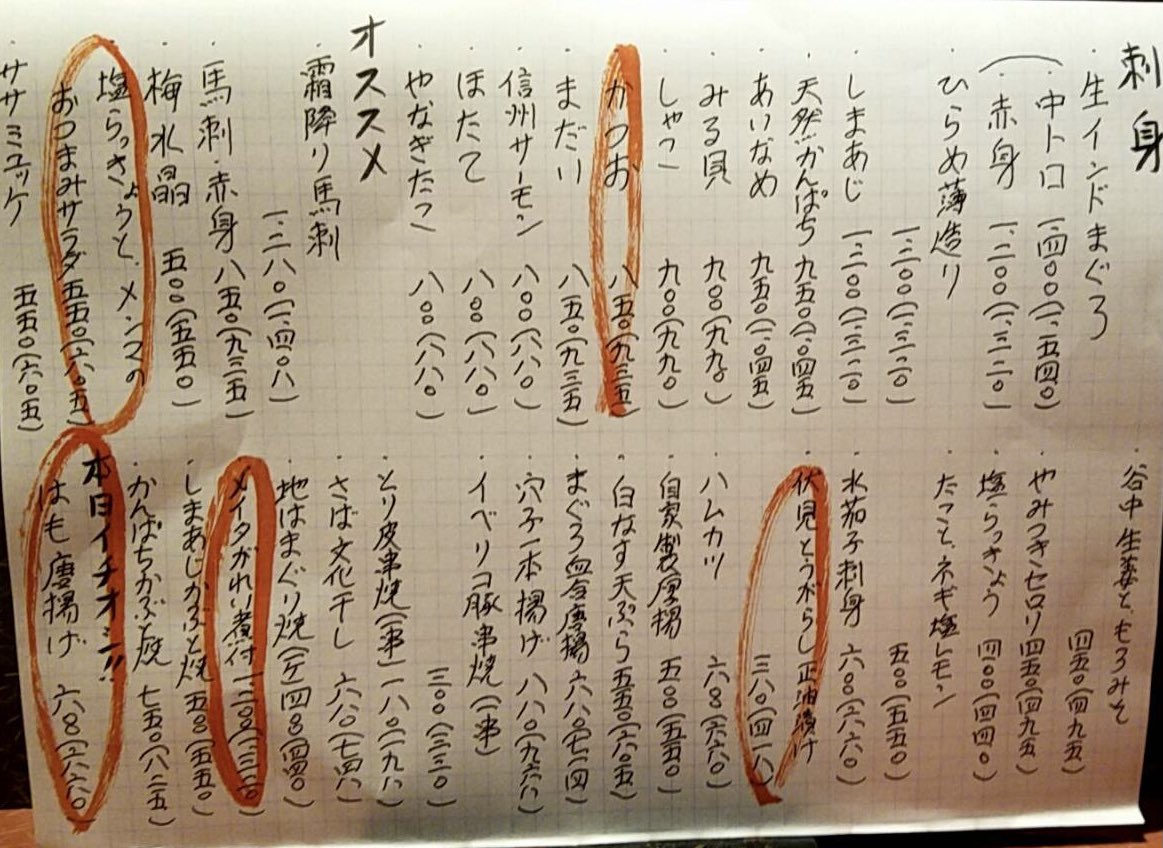 刺身
・生インドまぐろ
・中トロ 一、四〇〇(一、五四〇)
・赤身 一、二〇〇(一、三二〇)
・ひらめ薄造り
一、二〇〇(一、三二〇)
・しまあじ 一、二〇〇(一、三二〇)
・天然かんぱち 九五〇(一、〇四五)
・あいなめ 九五〇(一、〇四五)
・みる貝 九〇〇(九九〇)
・しゃこ 九〇〇(九九〇)
・かつお 八五〇(九三五)
・まだい 八五〇(九三五)
・信州サーモン 八〇〇(八八〇)
・ほたて 八〇〇(八八〇)
・やなぎたこ 八〇〇(八八〇)
オススメ
・霜降り馬刺
一、二八〇(一、四〇八)
・馬刺赤身 八五〇(九三五)
・梅水晶 五〇〇(五五〇)
・塩らっきょうと、メンマの
おつまみサラダ 五五〇(六〇五)
・ササミユッケ 五五〇(六〇五)
・谷中生姜と、もろみそ
四五〇(四九五)
・やみつきセロリ 四五〇(四九五)
・塩らっきょう 四〇〇(四四〇)
・たこと、ネギ塩レモン
五〇〇(五五〇)
・水茄子刺身 六〇〇(六六〇)
・伏見とうがらし正油漬け
三八〇(四一八)
・ハムカツ 六〇〇(六六〇)
・自家製厚揚 五〇〇(五五〇)
・白なす天ぷら 五五〇(六〇五)
・まぐろ血合唐揚 六八〇(七一四)
・穴子一本揚げ 八八〇(九六八)
・イベリコ豚串焼(一串)
三〇〇(三三〇)
・とり皮串焼(一串) 一八〇(一九八)
・さば文化干し 六八〇(七四八)
・地はまぐり焼(一ケ) 四〇〇(四四〇)
・メイタがれい煮付 一、二〇〇(一、三二〇)
・しまあじかぶと焼 五〇〇(五五〇)
・かんぱちかぶと焼 七五〇(八二五)
本日イチオシ!!
・はも唐揚げ 六〇〇(六六〇)